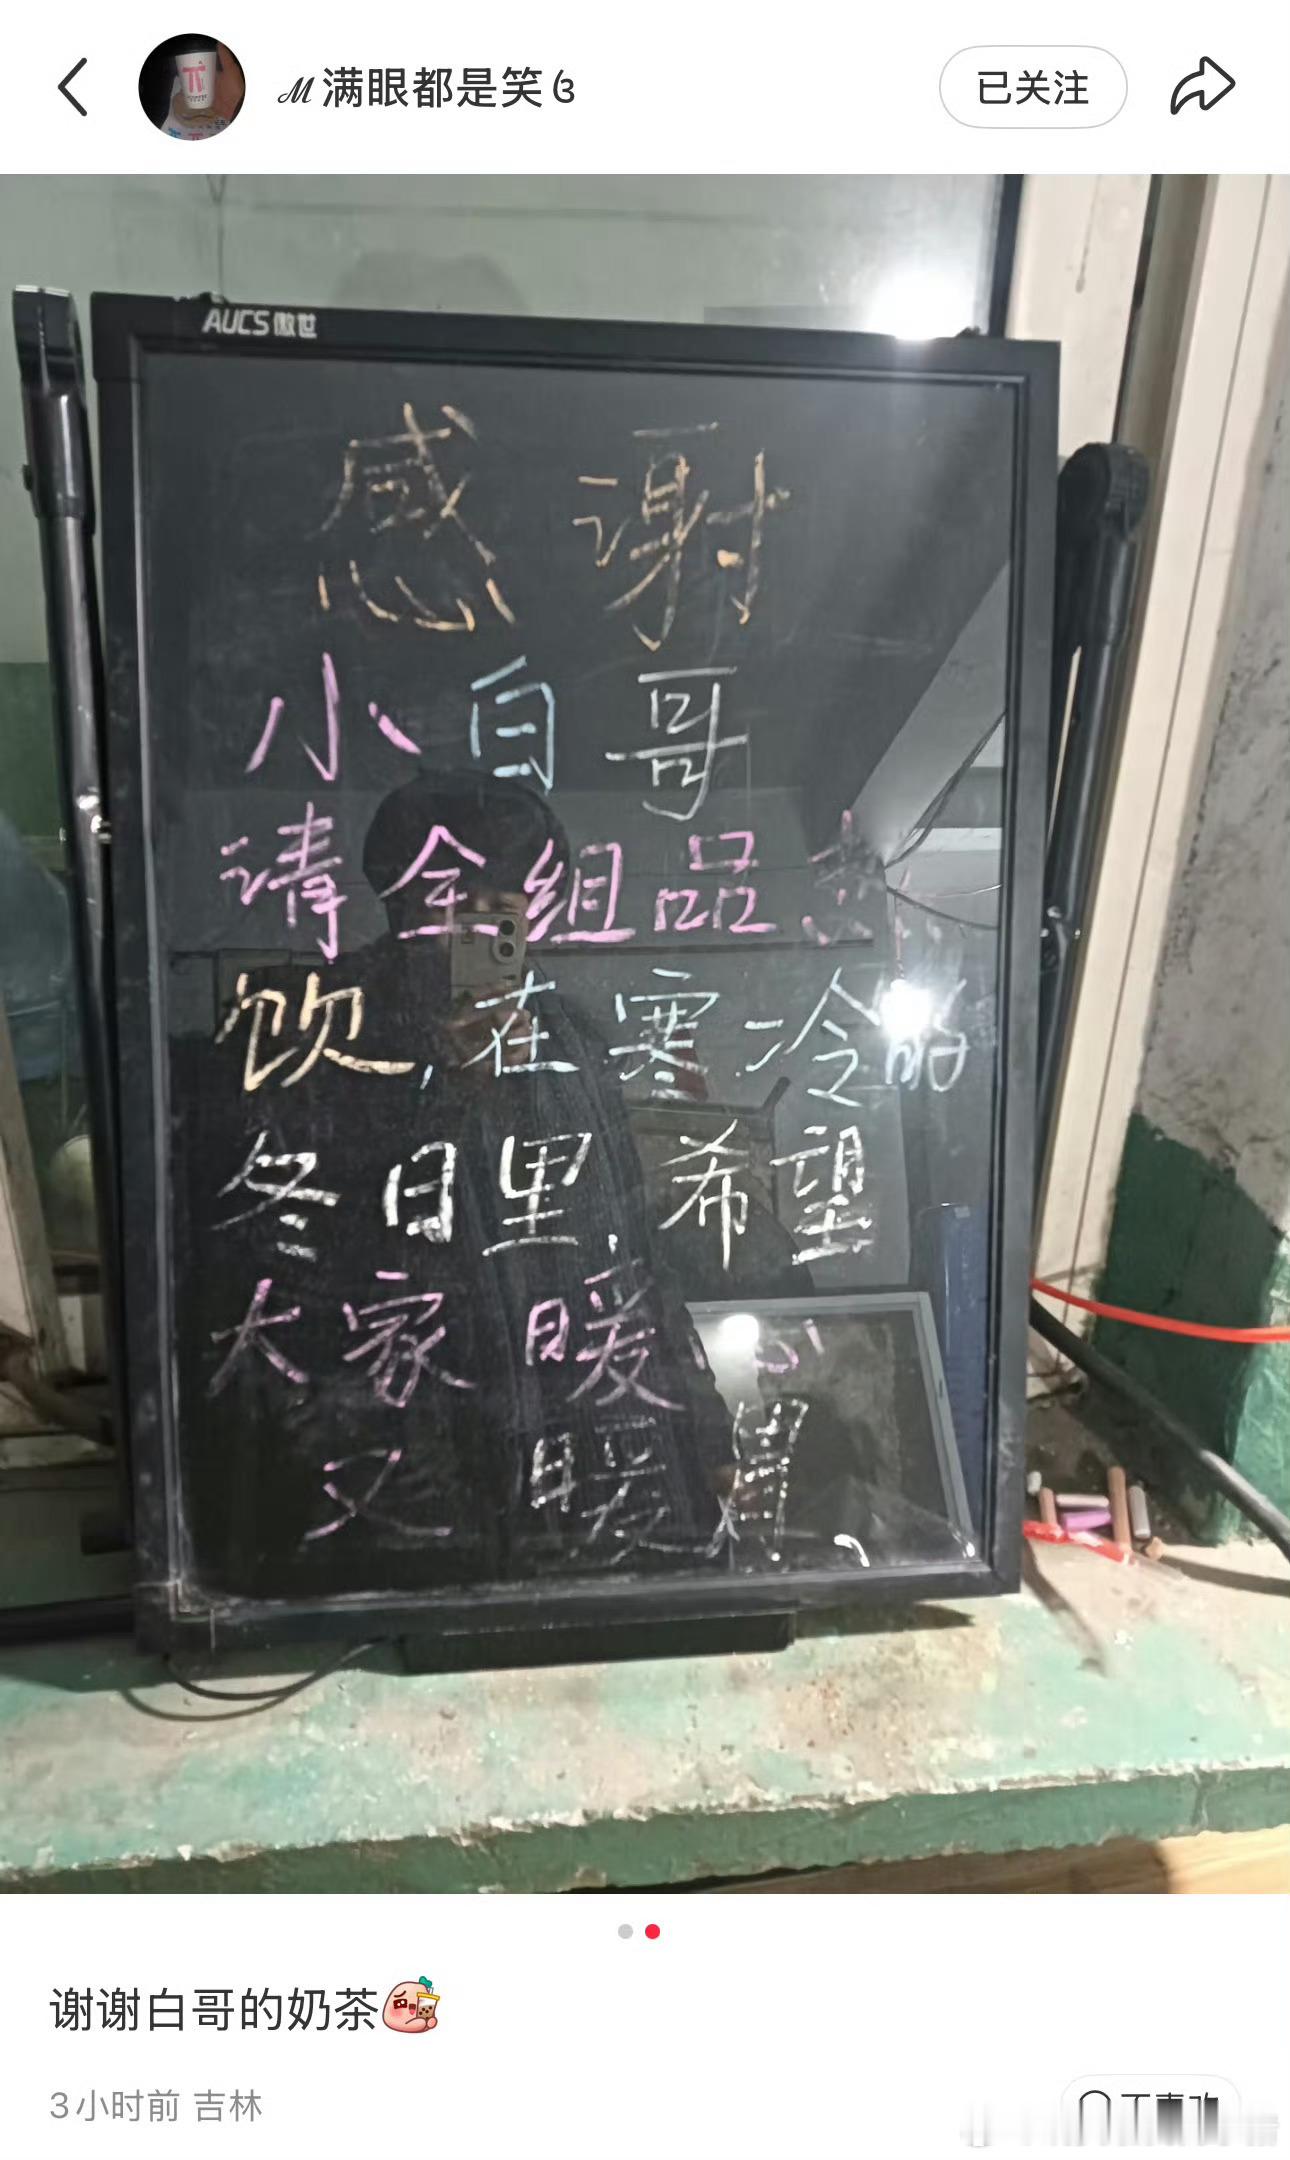 满眼都是笑
已关注
AUCS 傲世
感谢
小白哥
请全组品热
饮,在寒冷的
冬日里,希望
大家暖心
又暖胃、
谢谢白哥的奶茶
3小时前 吉林